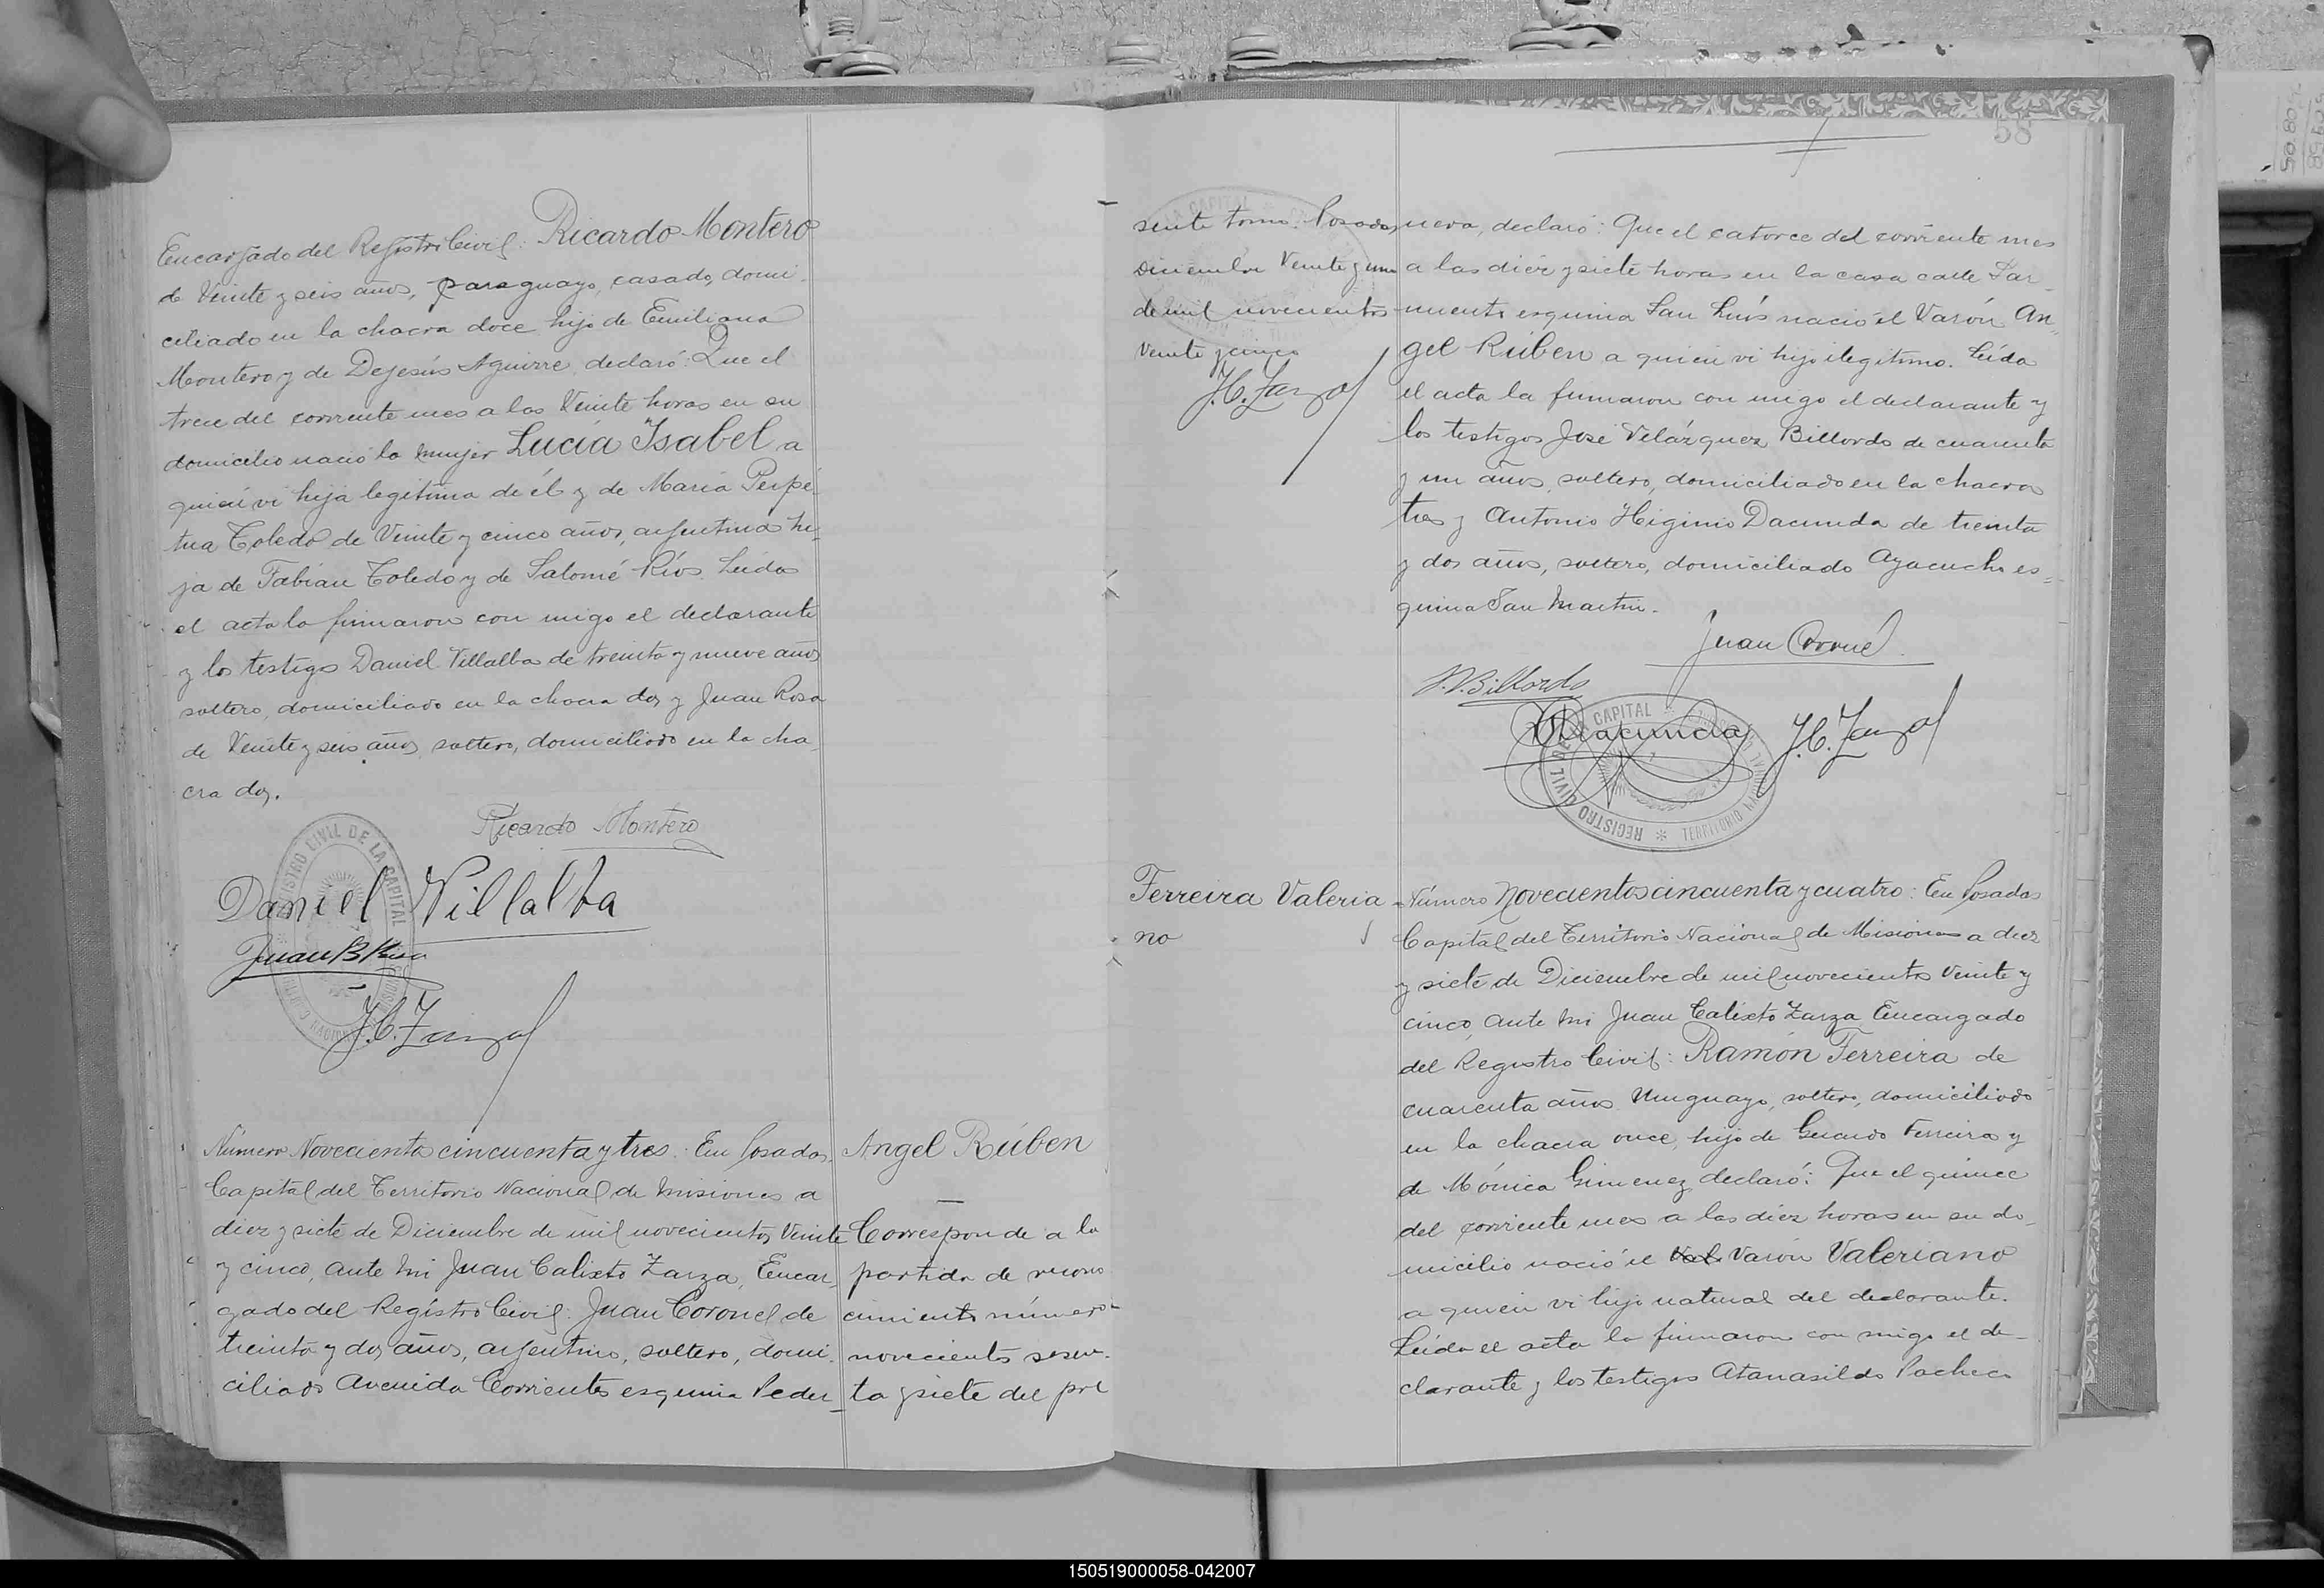 Encargado del Registro Civil: Ricardo Montero
de Veinte y seis años, paraguayo, casado, domi-
ciliado en la chacra doce hijo de Emiliana
Montero y de Dejesús Aguirre, declaró: Que el
trece del corriente mes a las Veinte horas en su
domicilio nació la mujer Lucía Isabel a
quien vi hija legítima de él y de María Perpé-
tua Toledo de Veinte y cinco años, argentina hi-
ja de Fabián Toledo y de Salomé Ríos. Leída
el acta la firmaron con migo el declarante
y los testigos Daniel Villalba de treinta y nueve años
soltero, domiciliado en la chacra dos y Juan Rosa
de Veinte y seis años, soltero, domiciliado en la cha
cra dos.
Ricardo Montero
Daniel Villalba
Juan B Rosa
J.C. Zarza
REGISTRO CIVIL DE LA CAPITAL
Número Novecientos cincuenta y tres: En Posadas,
Capital del Territorio Nacional de Misiones a
diez y siete de Diciembre de mil novecientos Veinte
y cinco, ante mi Juan Calixto Zarza, Encar-
gado del Registro Civil: Juan Coronel de
treinta y dos años, argentino, soltero, domi-
ciliado Avenida Corrientes esquina Peder-
Angel Rúben
Corresponde a la
partida de recono
cimiento número
novecientos sesen-
ta y siete del pre
58
sente tomo. Posadas,
Diciembre Veinte y uno
de mil novecientos
Veinte y cinco
J.C. Zarza
nera, declaró: Que el catorce del corriente mes
a las diez y siete horas en la casa calle Sar-
miento esquina San Luís nació el Varón An-
gel Rúben a quien vi hijo ilegítimo. Leída
el acta la firmaron con migo el declarante y
los testigos José Velázquez Billordo de cuarenta
y un años, soltero, domiciliado en la chacra
tres y Antonio Higinio Dacunda de treinta
y dos años, soltero, domiciliado Ayacucho es-
quina San Martín.
Juan Coronel
J.V. Billordo
Dacunda
J.C. Zarza
REGISTRO CIVIL DE LA CAPITAL * TERRITORIO NACIONAL
Ferreira Valeria
no
Número Novecientos cincuenta y cuatro: En Posadas
Capital del Territorio Nacional de Misiones a diez
y siete de Diciembre de mil novecientos Veinte y
cinco, ante mi Juan Calixto Zarza Encargado
del Registro Civil: Ramón Ferreira de
cuarenta años Uruguayo, soltero, domiciliado
en la chacra once, hijo de Gerardo Ferreira y
de Mónica Gimenez, declaró: Que el quince
del corriente mes a las diez horas en su do-
micilio nació el Val Varón Valeriano
a quien vi hijo natural del declarante.
Leída el acta la firmaron con migo el de-
clarante y los testigos Atanasildo Pacheco
150519000058-042007